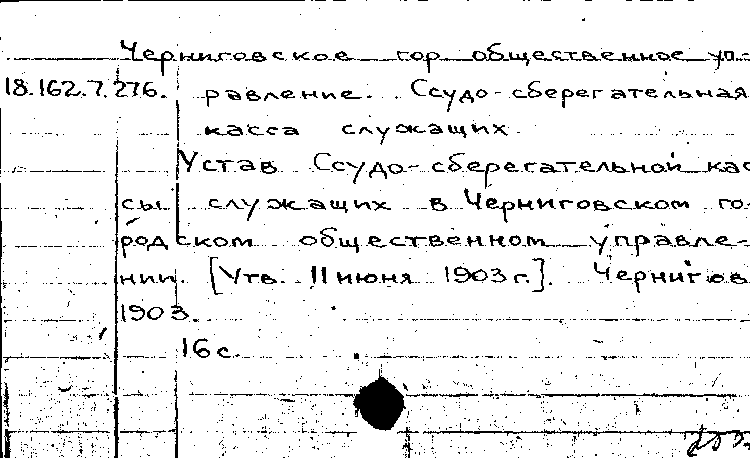 Черниговское гор общественное уп-
18.162.7.276. равление. Ссудо-сберегательная
касса служащих.
Устав Ссудо-сберегательной кас
сы служащих в Черниговском го-
родском общественном управле-
нии. [Утв. 11 июня 1903 г.]. Чернигов
1903.
16 с.